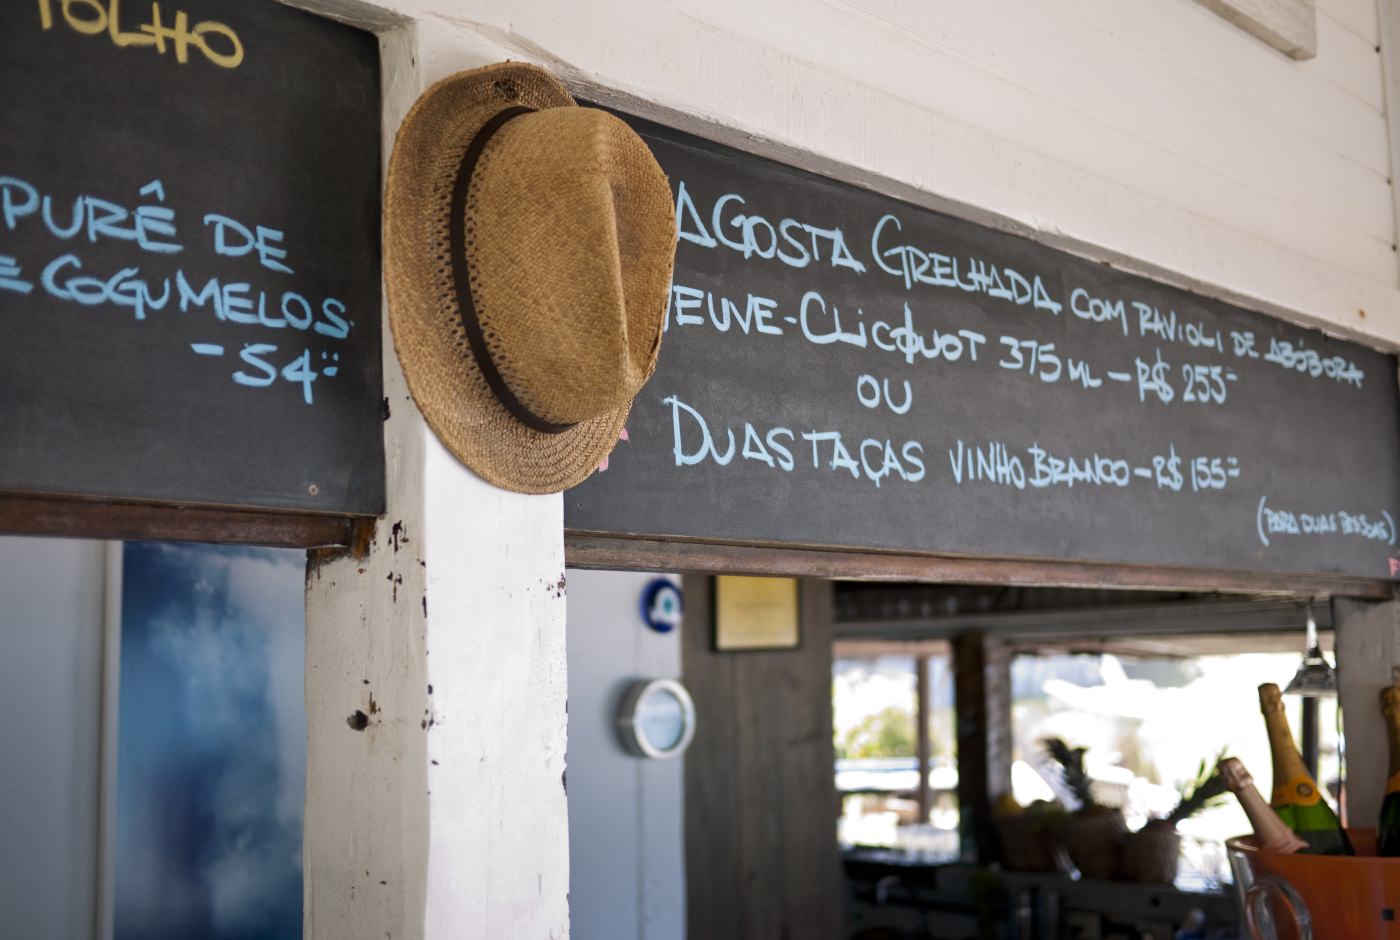 MOLHO
PURÊ DE
E COGUMELOS
- 54=
AGOSTA GRELHADA COM RAVIOLI DE ABÓBORA
EUVE-CLICQUOT 375 ML - R$ 255=
OU
DUAS TAÇAS VINHO BRANCO - R$ 155=
(PARA DUAS PESSOAS)